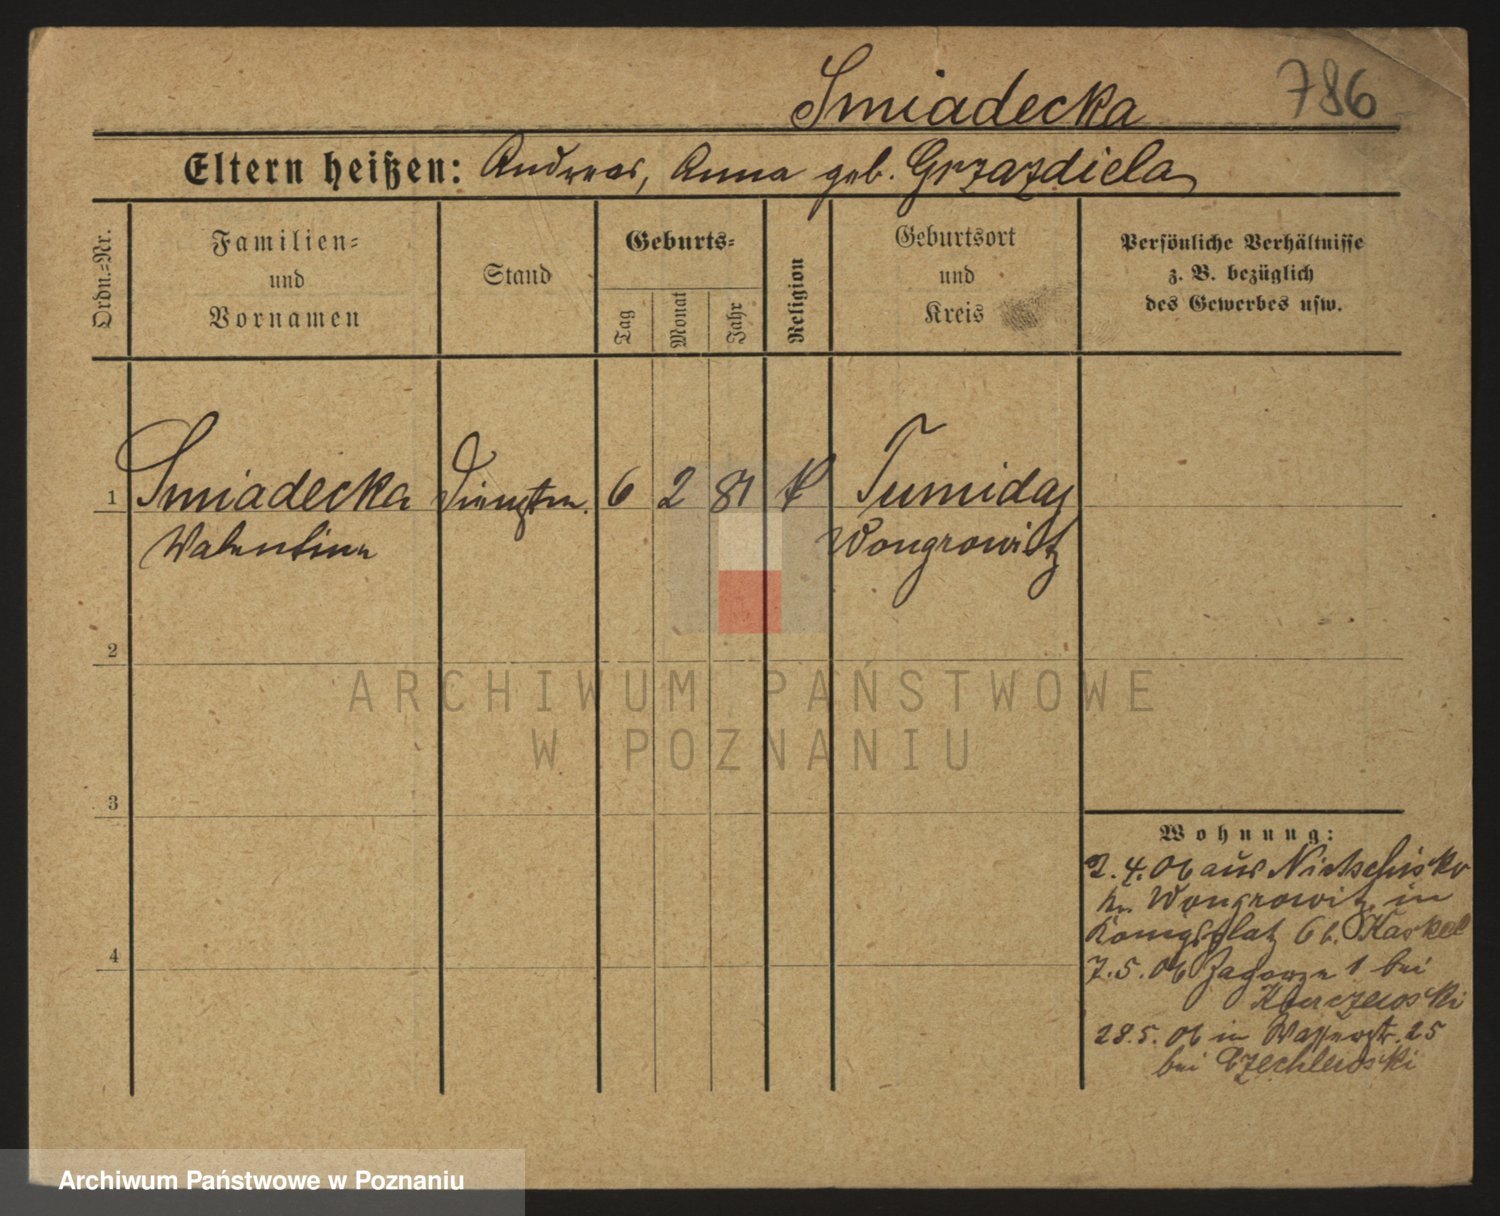 Smiadecka
786
Eltern heißen: Andreas, Anna geb. Grzazdiela
Ordn.=Nr.
Familien=
und
Vornamen
Stand
Geburts=
Tag
Monat
Jahr
Religion
Geburtsort
und
Kreis
Persönliche Verhältnisse
z. B. bezüglich
des Gewerbes usw.
1 Smiadecka Dienstm. 6 2 81 k Tumidaj
Valentine Wongrowitz
2
3
4
Wohnung:
2.4.06 aus
Kr. Wongrowitz, in
Königsplatz 6 b. Kaskel
7.5.06 Jagorze 1 bei
28.5.06 in Wasserstr. 25
bei Czechlewski
ARCHIWUM PAŃSTWOWE
W POZNANIU
Archiwum Państwowe w Poznaniu